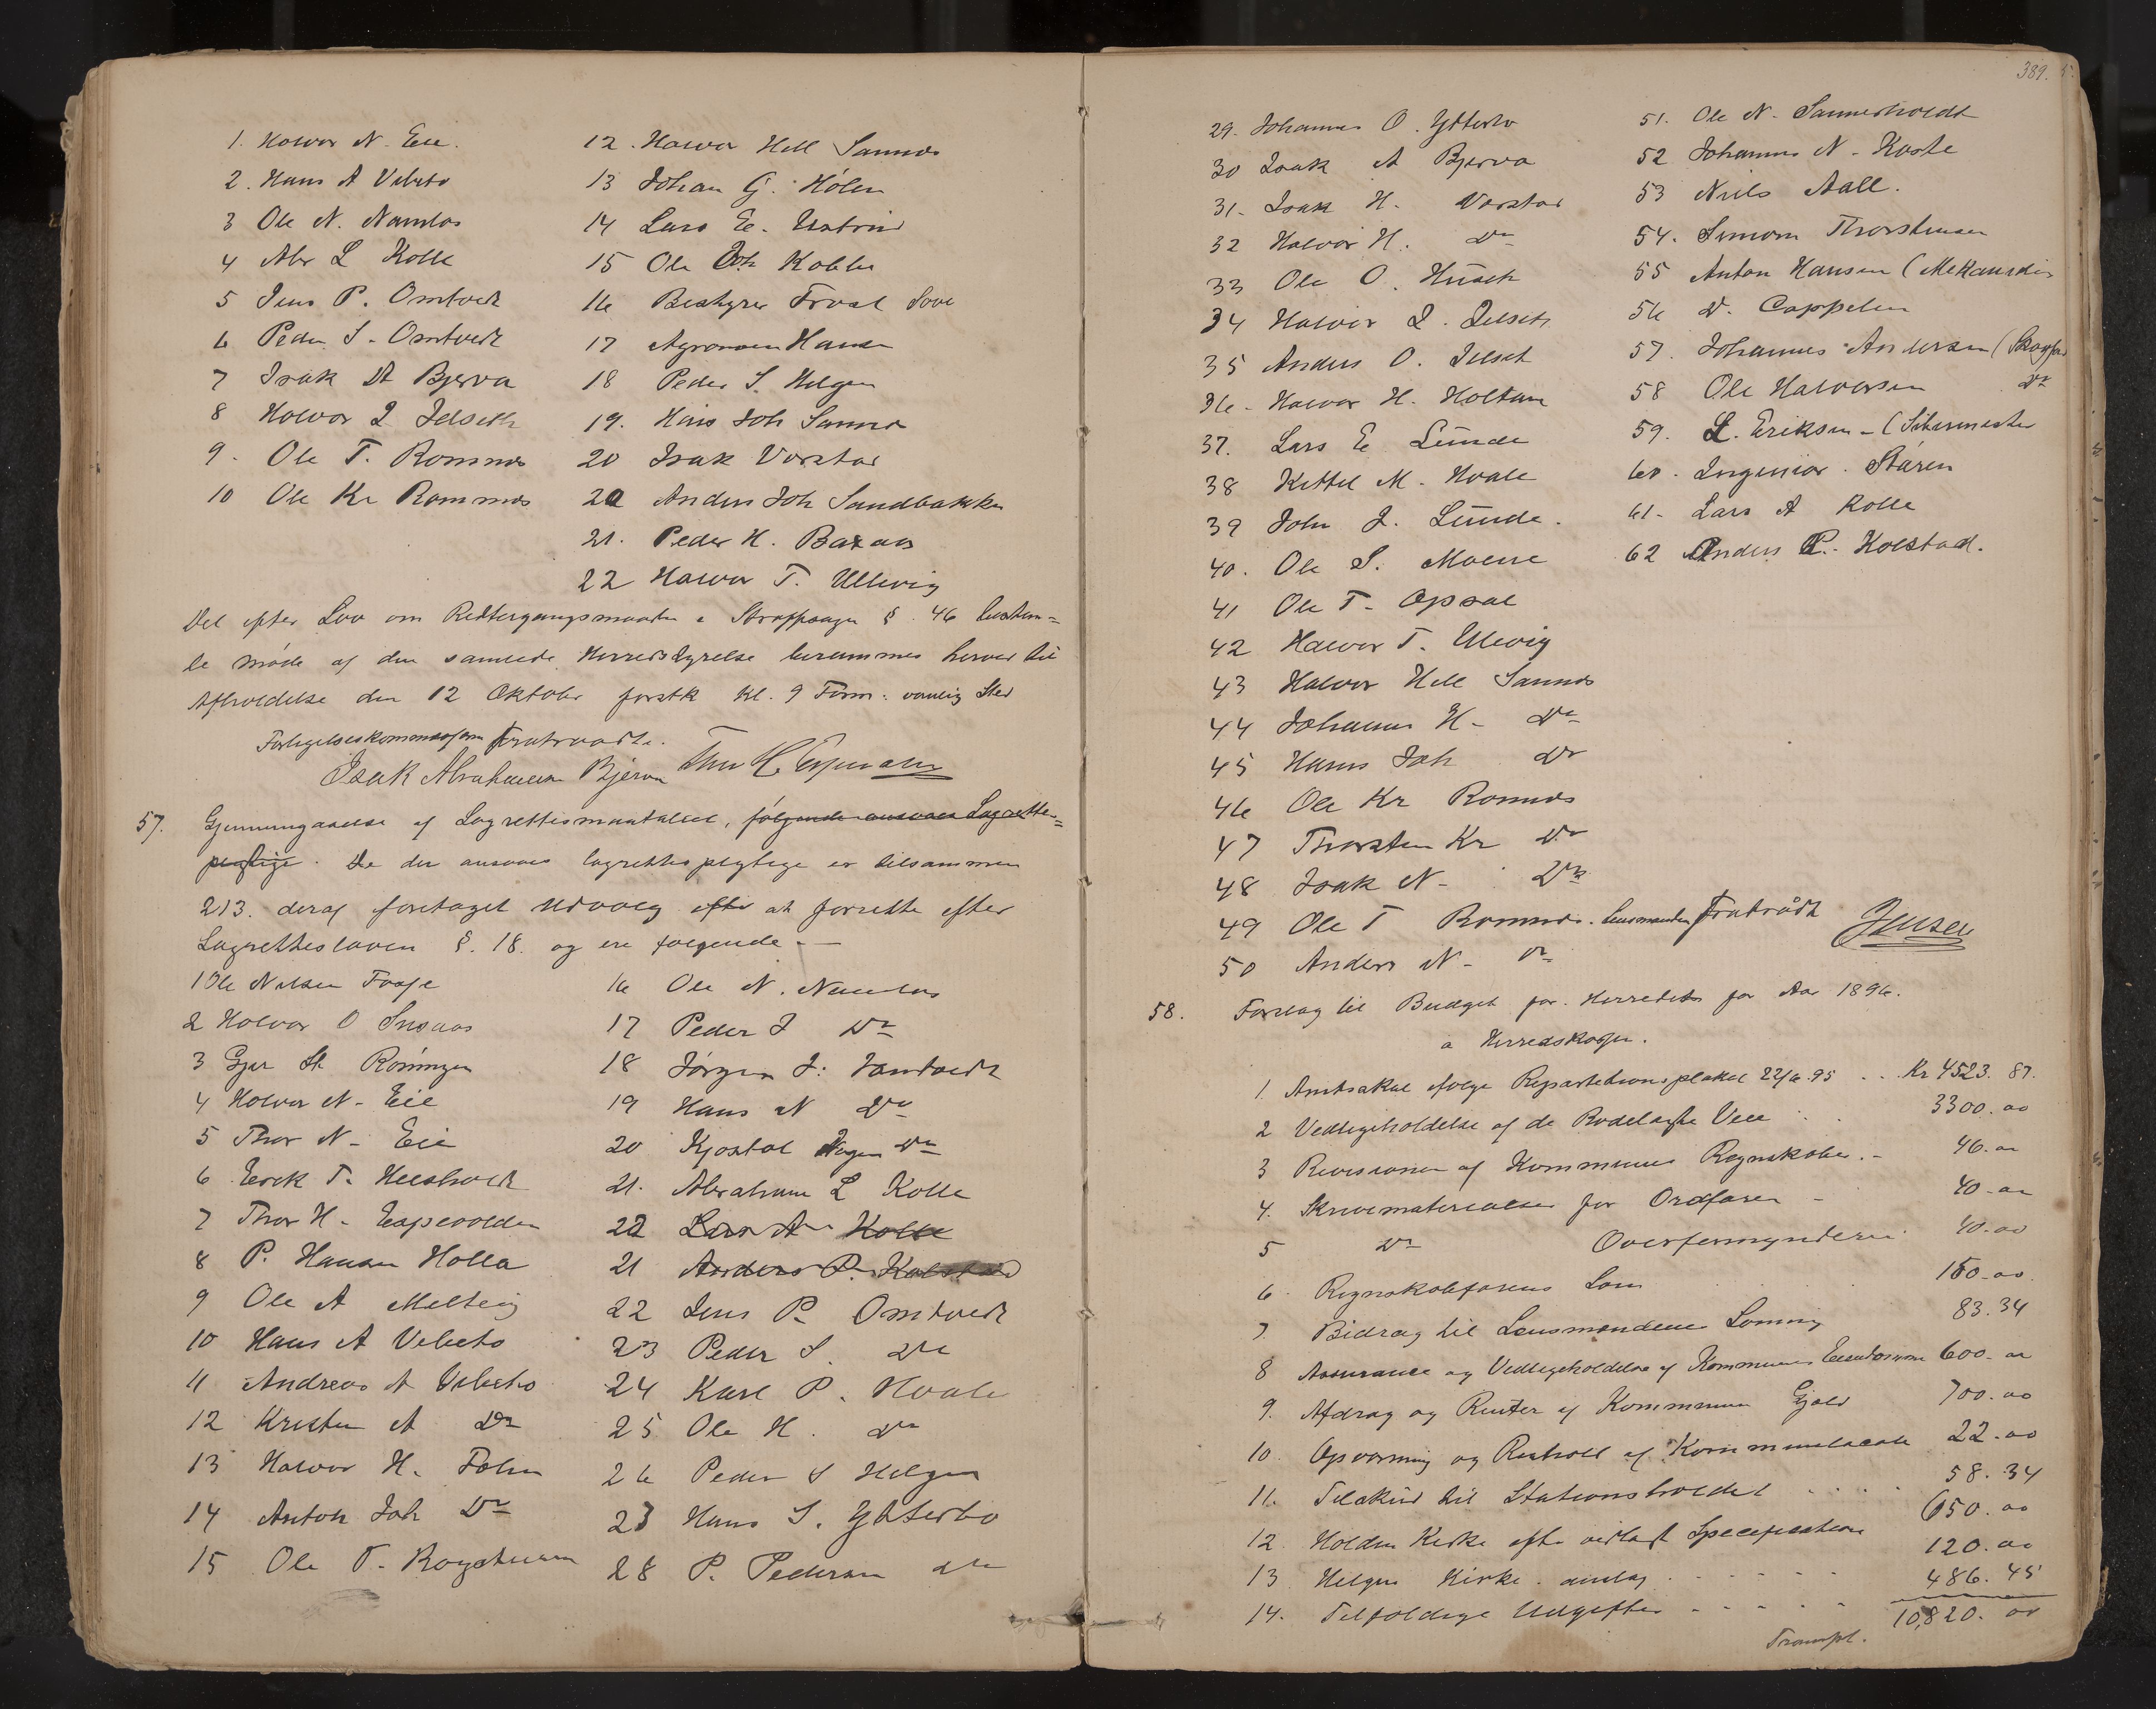 1. Halvor N. Eie.
2. Hans A Vibeto
3 Ole N. Namlos
4 Abr L Kolle
5 Jens P. Omtvedt
6 Peder S. Omtvedt
7 Isak A Bjerva
8 Halvor I Jelseth
9. Ole T. Romnes
10 Ole Kr Romnes
12. Halvor Hell Sannes
13 Johan G. Holen
14 Lars E.
15 Ole Joh Kolle
16 Bestyrer Frost Sove
17 Agronom Hansen
18 Peder S. Helgen
19. Hans Joh Sannes
20 Isak Vorstad
20 Anders Joh Sandbakken
21. Peder H. Baxaas
22 Halvor T. Ullevig
Det efter Lov om Rettergangsmaaden i Straffesager § 46 bestem=
te møde af den samlede Herredstyrelse berammes herved til
Afholdelse den 12 Oktober førstk kl. 9 Form: vanlig Sted
Forligelseskommissæren fratraadte.
Isak Abrahamsen Bjerva
57. Gjennemgaaelse af Lagrettesmantallet, følgende ansaaes Lagrette=
pligtige. De der ansaaes lagrettespligtige er tilsammen
213. deraf foretaget Udvalg efter at forrette efter
Lagretteslovens §. 18. og ere følgende. —
1 Ole Nilsen Faafe
2 Halvor O Snsaas
3 Gjer St Røningen
4 Halvor N. Eie
5 Thor N. Eie
6 Eerik T. Heisholdt
7 Thor H. Easpevolden
8 P. Hansen Holla
9 Ole A Melteig
10 Hans A Vibeto
11 Andreas A Vibeto
12 Kristen A Do
13 Halvor H. Folin
14 Anton Joh Do
15 Ole T. Røysteinen
16 Ole N. Namlos
17 Peder J Do
18 Jørgen J. Tamtvedt
19 Hans N Do
20 Kjøstol Do
21. Abraham L Kolle
22 Lars A Kolle
21 Anders P. Kolstad
22 Jens P. Omtvedt
23 Peder S. Do
24 Karl P. Hvale
25 Ole H. Do
26 Peder S Helgen
27 Hans S. Ytterbø
28 P. Pedersen Do
389.
29. Johannes O. Ytterbø
30 Isak A Bjerva
31. Isak H. Vorstad
32 Halvor H. Do
33 Ole O. Huseth
34 Halvor I. Jelseth
35 Anders O. Jelseth
36. Halvor H. Holtan
37. Lars E Lunde
38 Kittel M. Hvale
39 John J. Lunde.
40. Ole S. Moene
41 Ole T. Opsal
42 Halvor T. Ullevig
43 Halvor Hell Sannes
44 Johannes H. Do
45 Hans Joh Do
46 Ole Kr Romnes
47 Thorsten Kr Do
48 Isak N. Do
49 Ole T Romnes. Lensmanden fratrådt Jensen
50 Anders N. Do
51. Ole N. Sannerholdt
52 Johannes N. Kaste
53 Niels Aall.
54. Simon Thorstensen
55 Anton Hansen (Mekanikus
56 D. Cappelen
57. Johannes Andersen (Skogfør
58 Ole Halvorsen Do
59. L. Eriksen - (Stikermester
60. Ingeniør Støren
61. Lars A Kolle
62 Anders P. Kolstad.
58. Forslag til Budget for Herredets for Aar 1896.
a Herredskassen.
1. Amtsskat ifølge Repartitionsplakat 22/6.95 .. Kr 4523. 87.
2 Vedligeholdelse af de Rodelagte Veie . . 3300. 00
3 Revisionen af Kommunens Regnskaber. - 46. 00
4. Skrivematerialier for Ordføren - 40. 00
5 Do Overformynderiet 40. 00
6. Regnskabsførerens Løn 150. 00
7. Bidrag til Lensmandens Lønning 83. 34
8 Assurance og Vedligeholdelse af Kommunens Eiendomme 600. 00
9. Afdrag og Renter af Kommunens Gjeld 700. 00
10. Opvarming og Renhold af Kommunelocale 22. 00
11. Tilskud til Stationsholdet . . . . 58. 34
12. Holden Kirke efter vedlagt Specification 650. 00
13. Helgens Kirke. anslag . . . . . 120. 00
14. Tilfældige Udgifter . . . . . 486. 45
10,820. 00
Transpt.